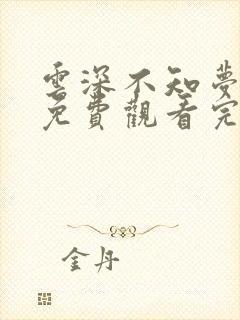 雲深不知夢
免費觀看完
金丹